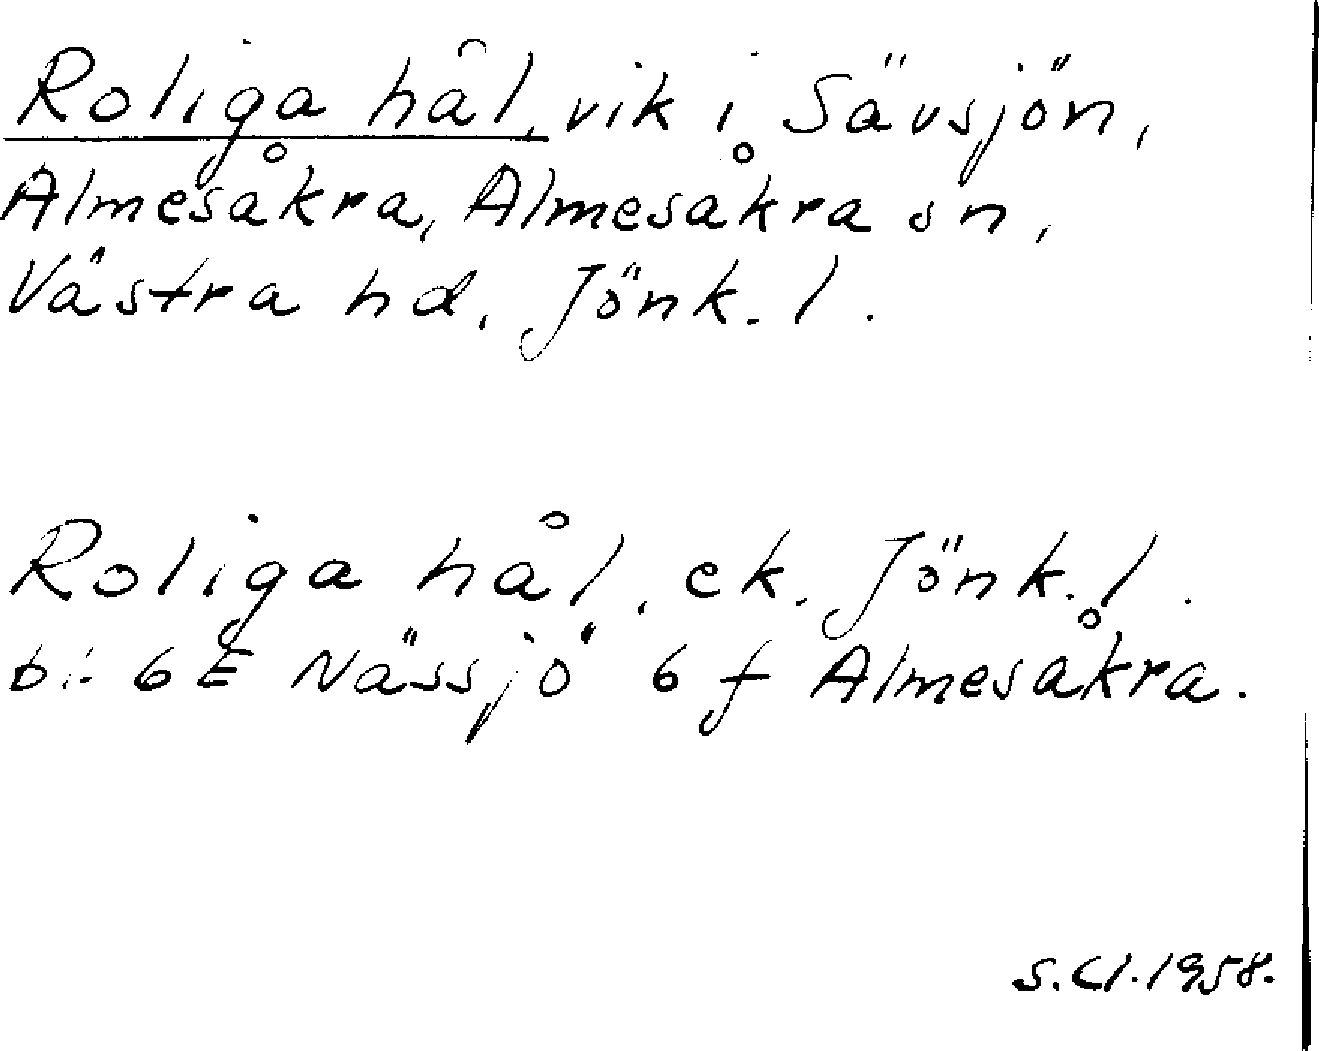 Roliga hål, vik i Sävsjön,
Almesåkra, Almesåkra sn,
Västra hd, Jönk. l.
Roliga hål, ek. Jönk. l.
bl. 6E Nässjö 6 f Almesåkra.
S. Cl. 1958.